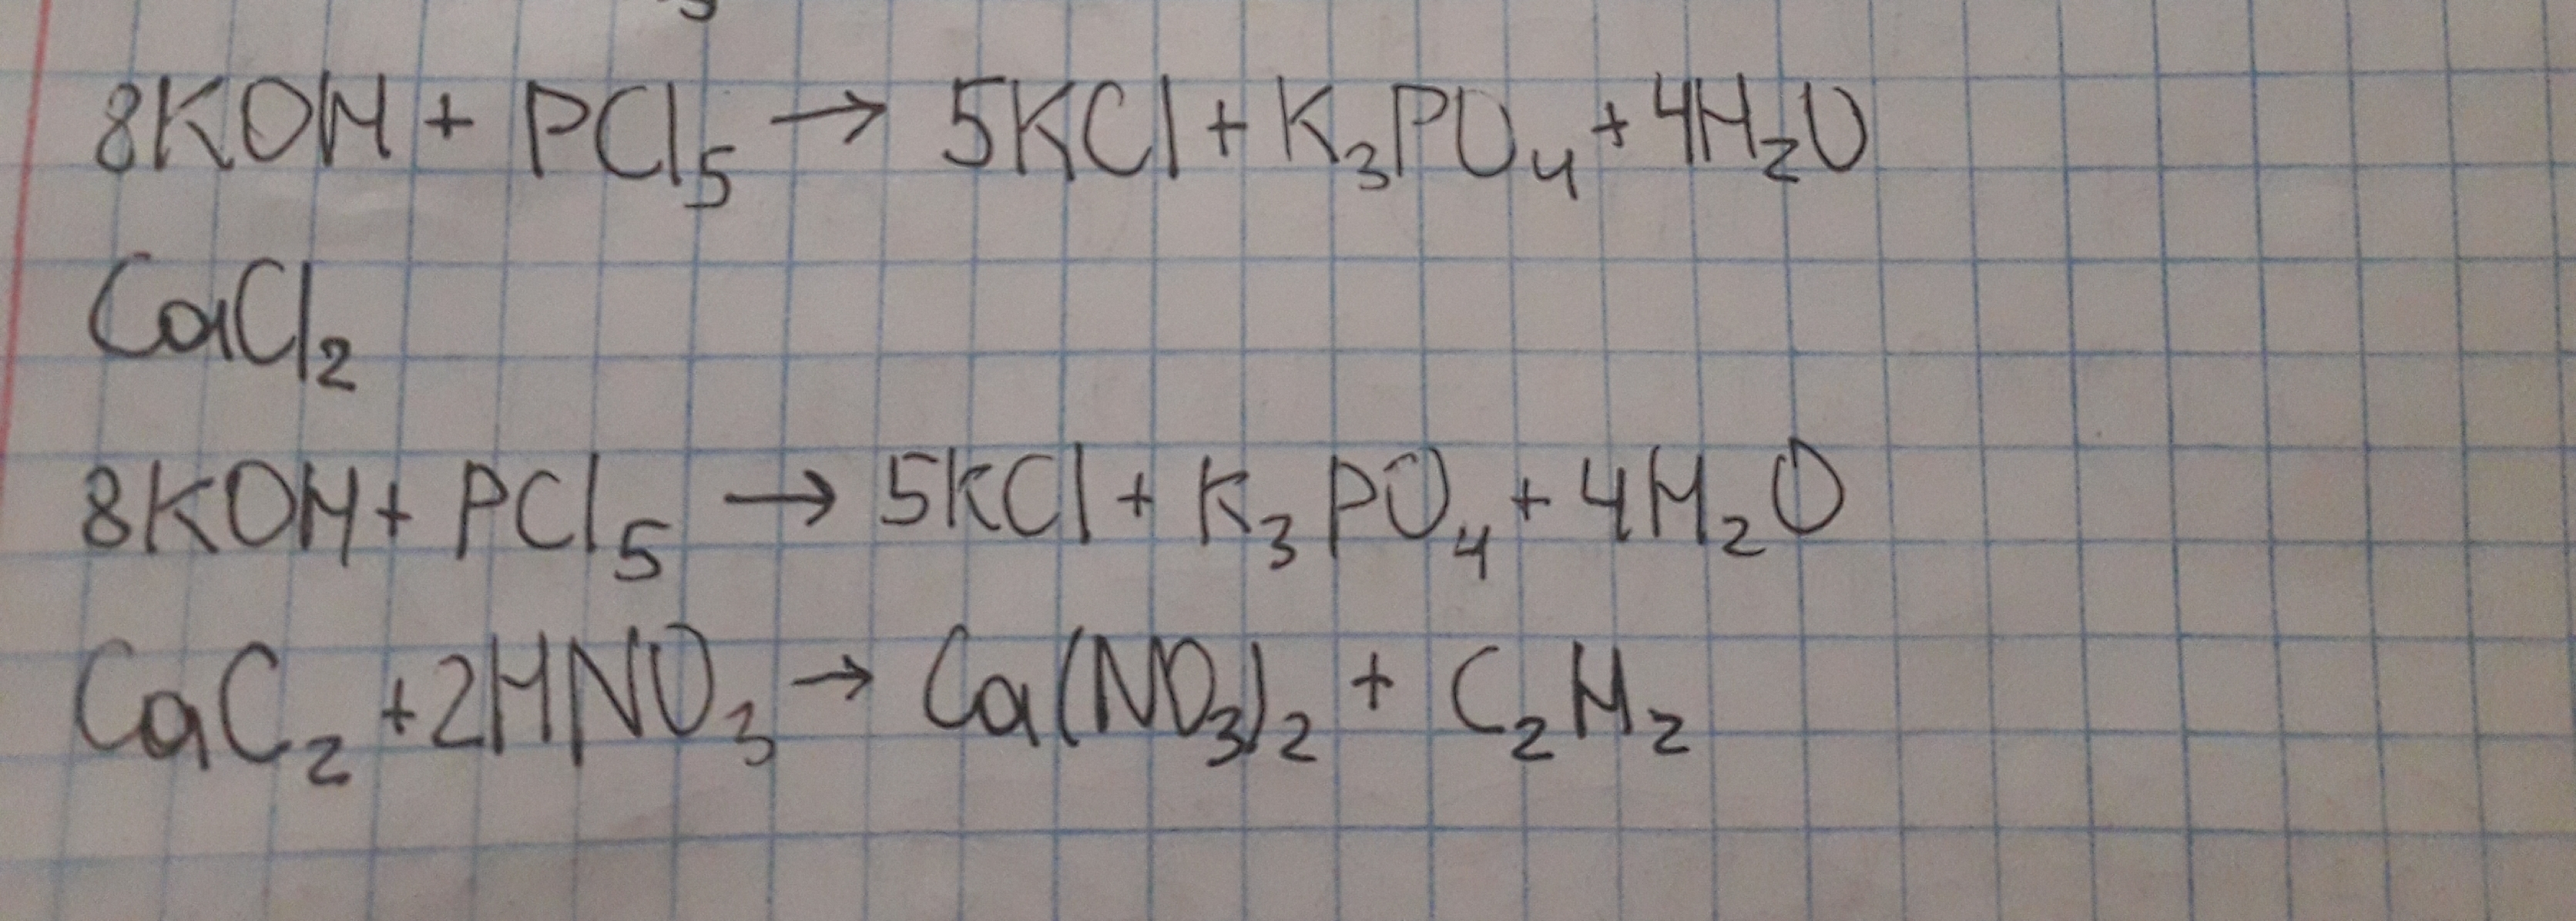 8KOH + PCl₅ → 5KCl + K₃PO₄ + 4H₂O
CaCl₂
8KOH + PCl₅ → 5KCl + K₃PO₄ + 4H₂O
CaC₂ + 2HNO₃ → Ca(NO₃)₂ + C₂H₂